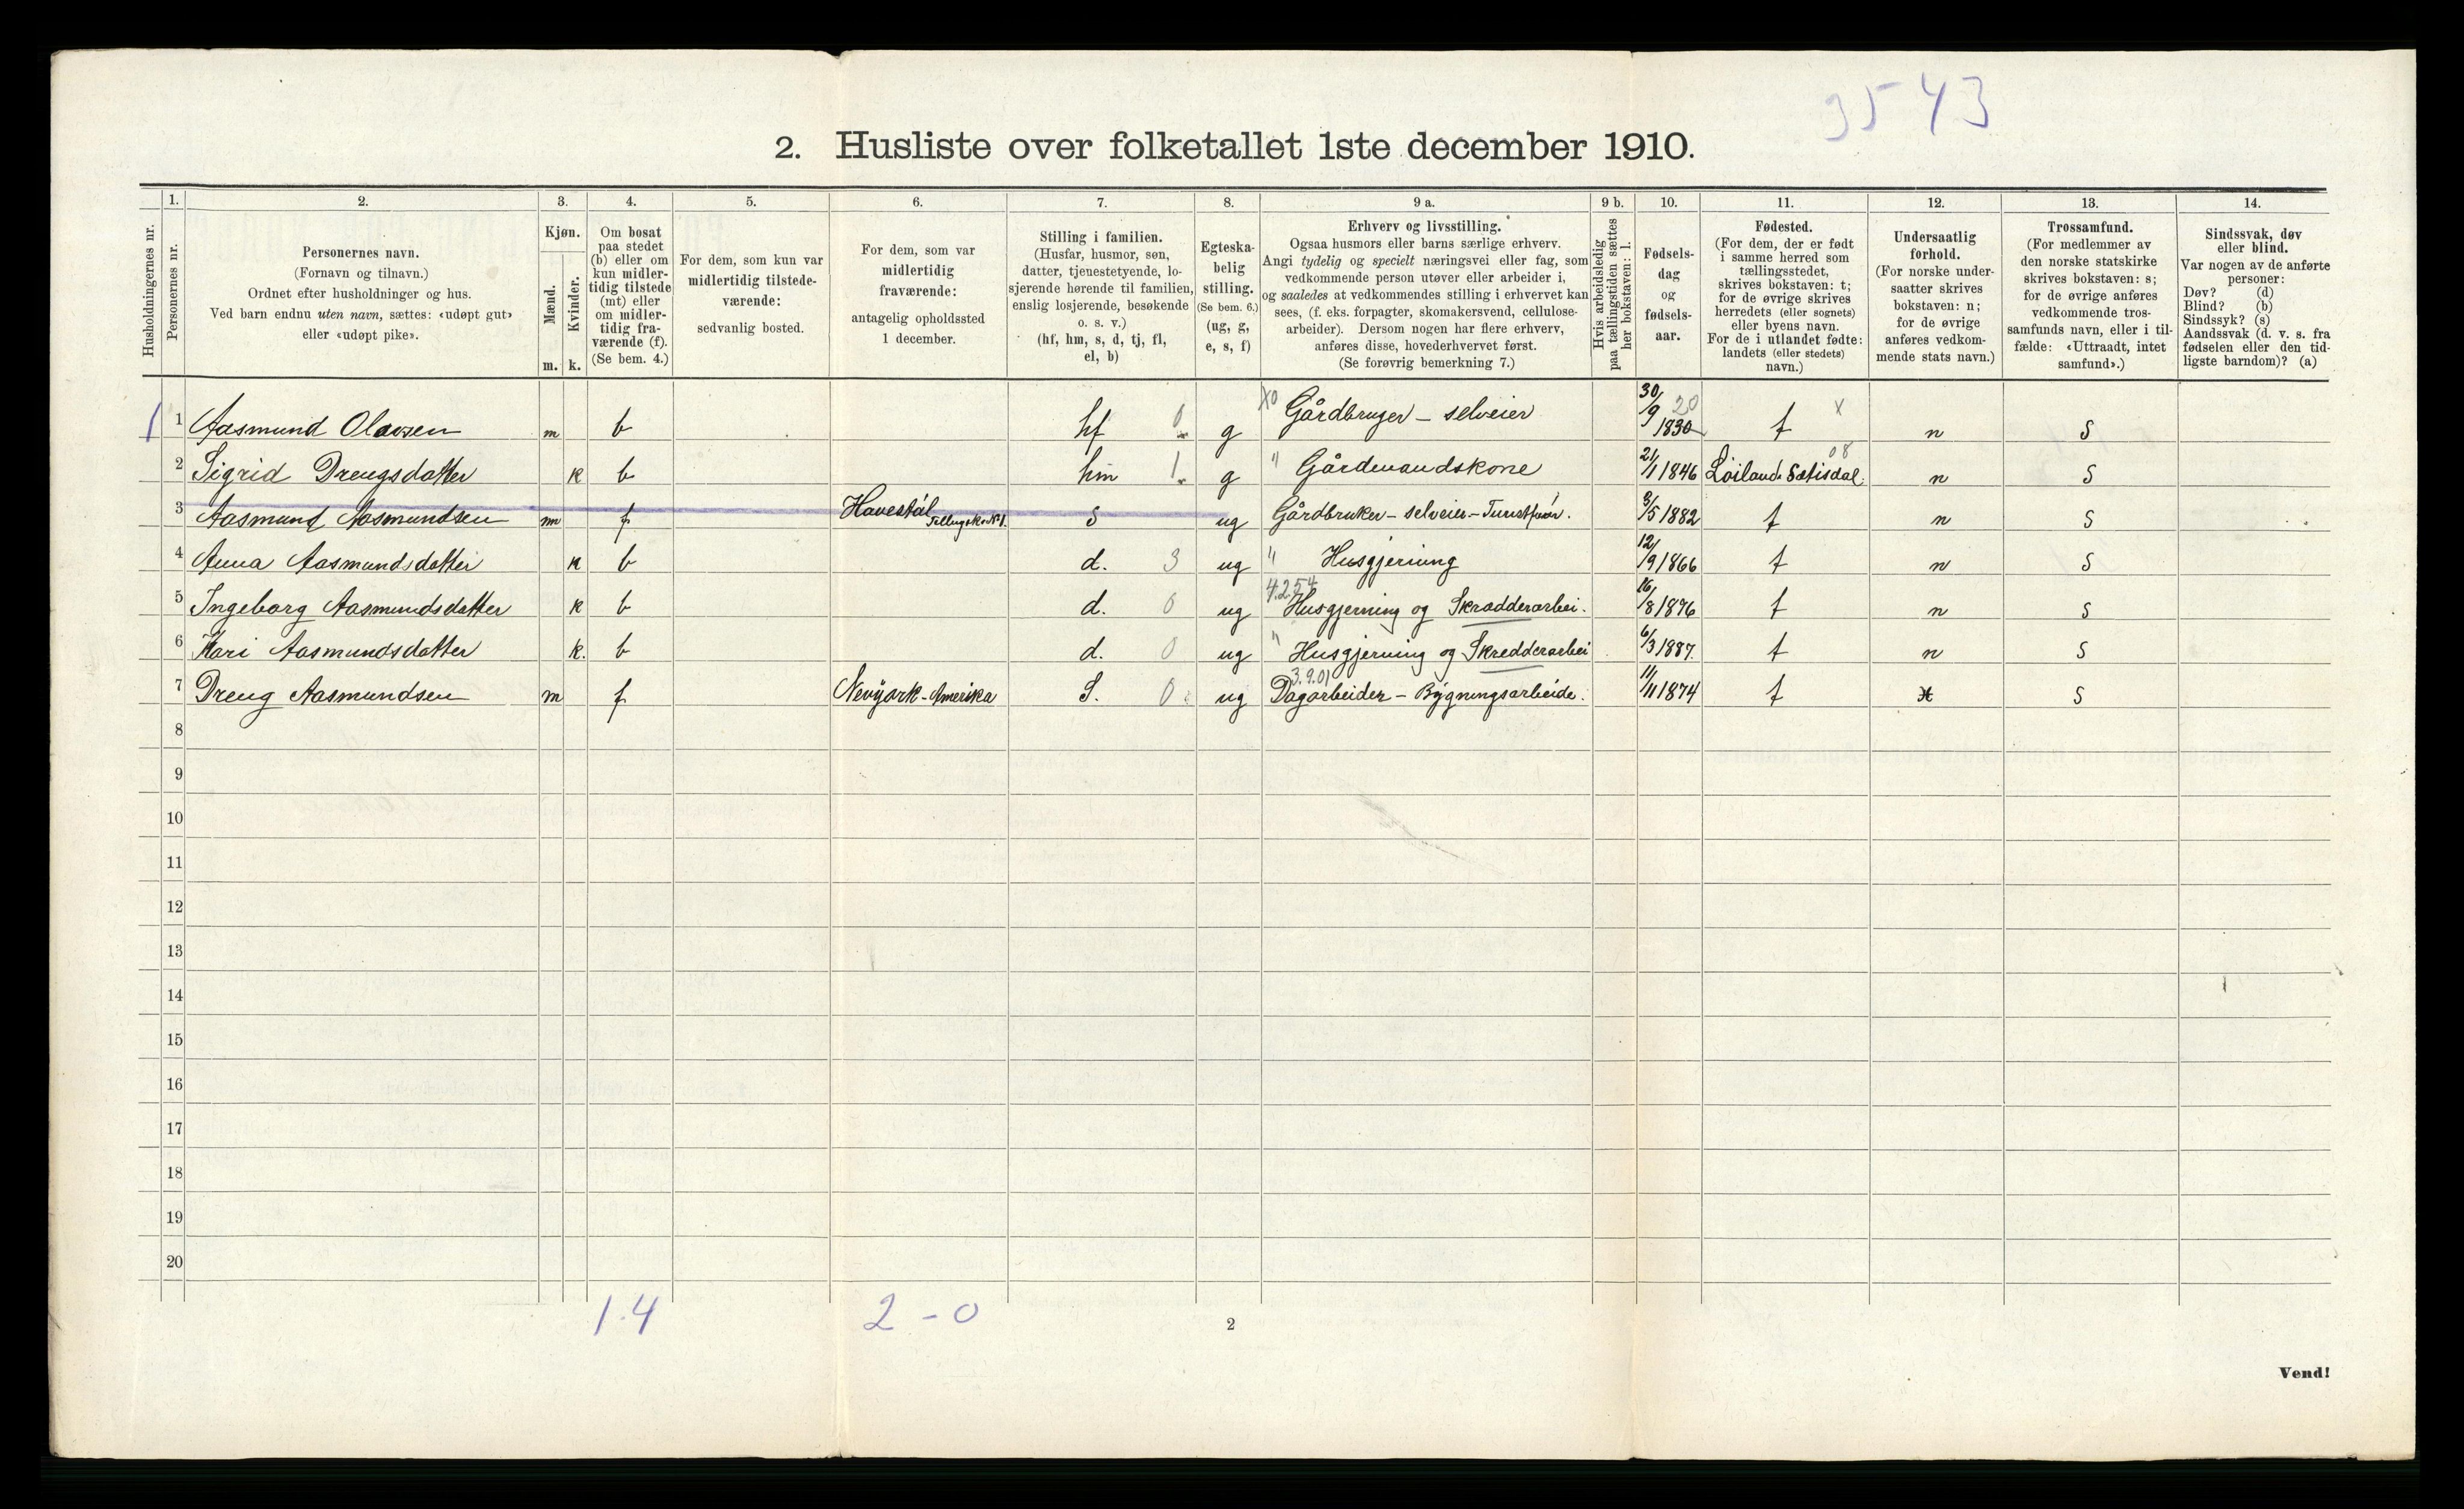 3543
2. Husliste over folketallet 1ste december 1910.
Husholdningernes nr.
1.
Personernes nr.
2.
Personernes navn.
(Fornavn og tilnavn.)
Ordnet efter husholdninger og hus.
Ved barn endnu uten navn, sættes: «udøpt gut»
eller «udøpt pike».
3.
Kjøn.
Mænd.
Kvinder.
m. k.
4.
Om bosat
paa stedet
(b) eller om
kun midler-
tidig tilstede
(mt) eller
om midler-
tidig fra-
værende (f).
(Se bem. 4.)
5.
For dem, som kun var
midlertidig tilstede-
værende:
sedvanlig bosted.
6.
For dem, som var
midlertidig
fraværende:
antagelig opholdssted
1 december.
7.
Stilling i familien.
(Husfar, husmor, søn,
datter, tjenestetyende, lo-
sjerende hørende til familien,
enslig losjerende, besøkende
o. s. v.)
(hf, hm, s, d, tj, fl,
el, b)
8.
Egteska-
belig
stilling.
(Se bem. 6.)
(ug, g,
e, s, f)
9 a.
Erhverv og livsstilling.
Ogsaa husmors eller barns særlige erhverv.
Angi tydelig og specielt næringsvei eller fag, som
vedkommende person utøver eller arbeider i,
og saaledes at vedkommendes stilling i erhvervet kan
sees, (f. eks. forpagter, skomakersvend, cellulose-
arbeider). Dersom nogen har flere erhverv,
anføres disse, hovederhvervet først.
(Se forøvrig bemerkning 7.)
9 b.
Hvis arbeidsledig
paa tællingstiden sættes
her bokstaven: l.
10.
Fødsels-
dag
og
fødsels-
aar.
11.
Fødested.
(For dem, der er født
i samme herred som
tællingsstedet,
skrives bokstaven: t;
for de øvrige skrives
herredets (eller sognets)
eller byens navn.
For de i utlandet fødte:
landets (eller stedets)
navn.)
12.
Undersaatlig
forhold.
(For norske under-
saatter skrives
bokstaven: n;
for de øvrige
anføres vedkom-
mende stats navn.)
13.
Trossamfund.
(For medlemmer av
den norske statskirke
skrives bokstaven: s;
for de øvrige anføres
vedkommende tros-
samfunds navn, eller i til-
fælde: «Uttraadt, intet
samfund».)
14.
Sindssvak, døv
eller blind.
Var nogen av de anførte
personer:
Døv? (d)
Blind? (b)
Sindssyk? (s)
Aandssvak (d. v. s. fra
fødselen eller den tid-
ligste barndom)? (a)
1 1 Aasmund Olavsen m b hf 0 g X0 Gårdbruger – selveier 30/9 1830 20 t x n S
2 Sigrid Drengsdatter k b hm 1 g " Gårdmandskone 21/1 1846 Löiland Sætisdal 08 n S
3 Aasmund Aasmundsen m f Havestål S ug Gårdbruker – selveier – 3/5 1882 t n S
4 Anna Aasmundsdatter k b d. 3 ug " Husgjerning 12/9 1866 t n S
5 Ingeborg Aasmundsdatter k b d. 0 ug 4.254 Husgjerning og Skrædderarbei. 16/8 1876 t n S
6 Kari Aasmundsdatter k. b d. 0 ug " Husgjerning og Skredderarbei 6/3 1887. t n S
7 Dreng Aasmundsen m f Nevÿork – Amerika S. 0 ug 3.9.01 Dagarbeider – Bÿgningsarbeide. 11/11 1874 t S
8
9
10
11
12
13
14
15
16
17
18
19
20
1.4 2 – 0
2
Vend!